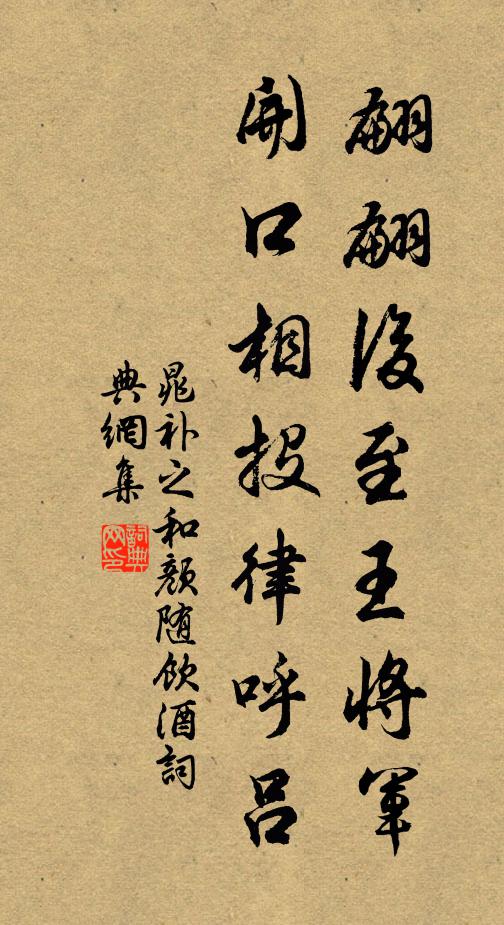 翩翩後至王將軍
開口相投律呼呂
晁补之和顏随飲酒詞
典網集
詞典網印